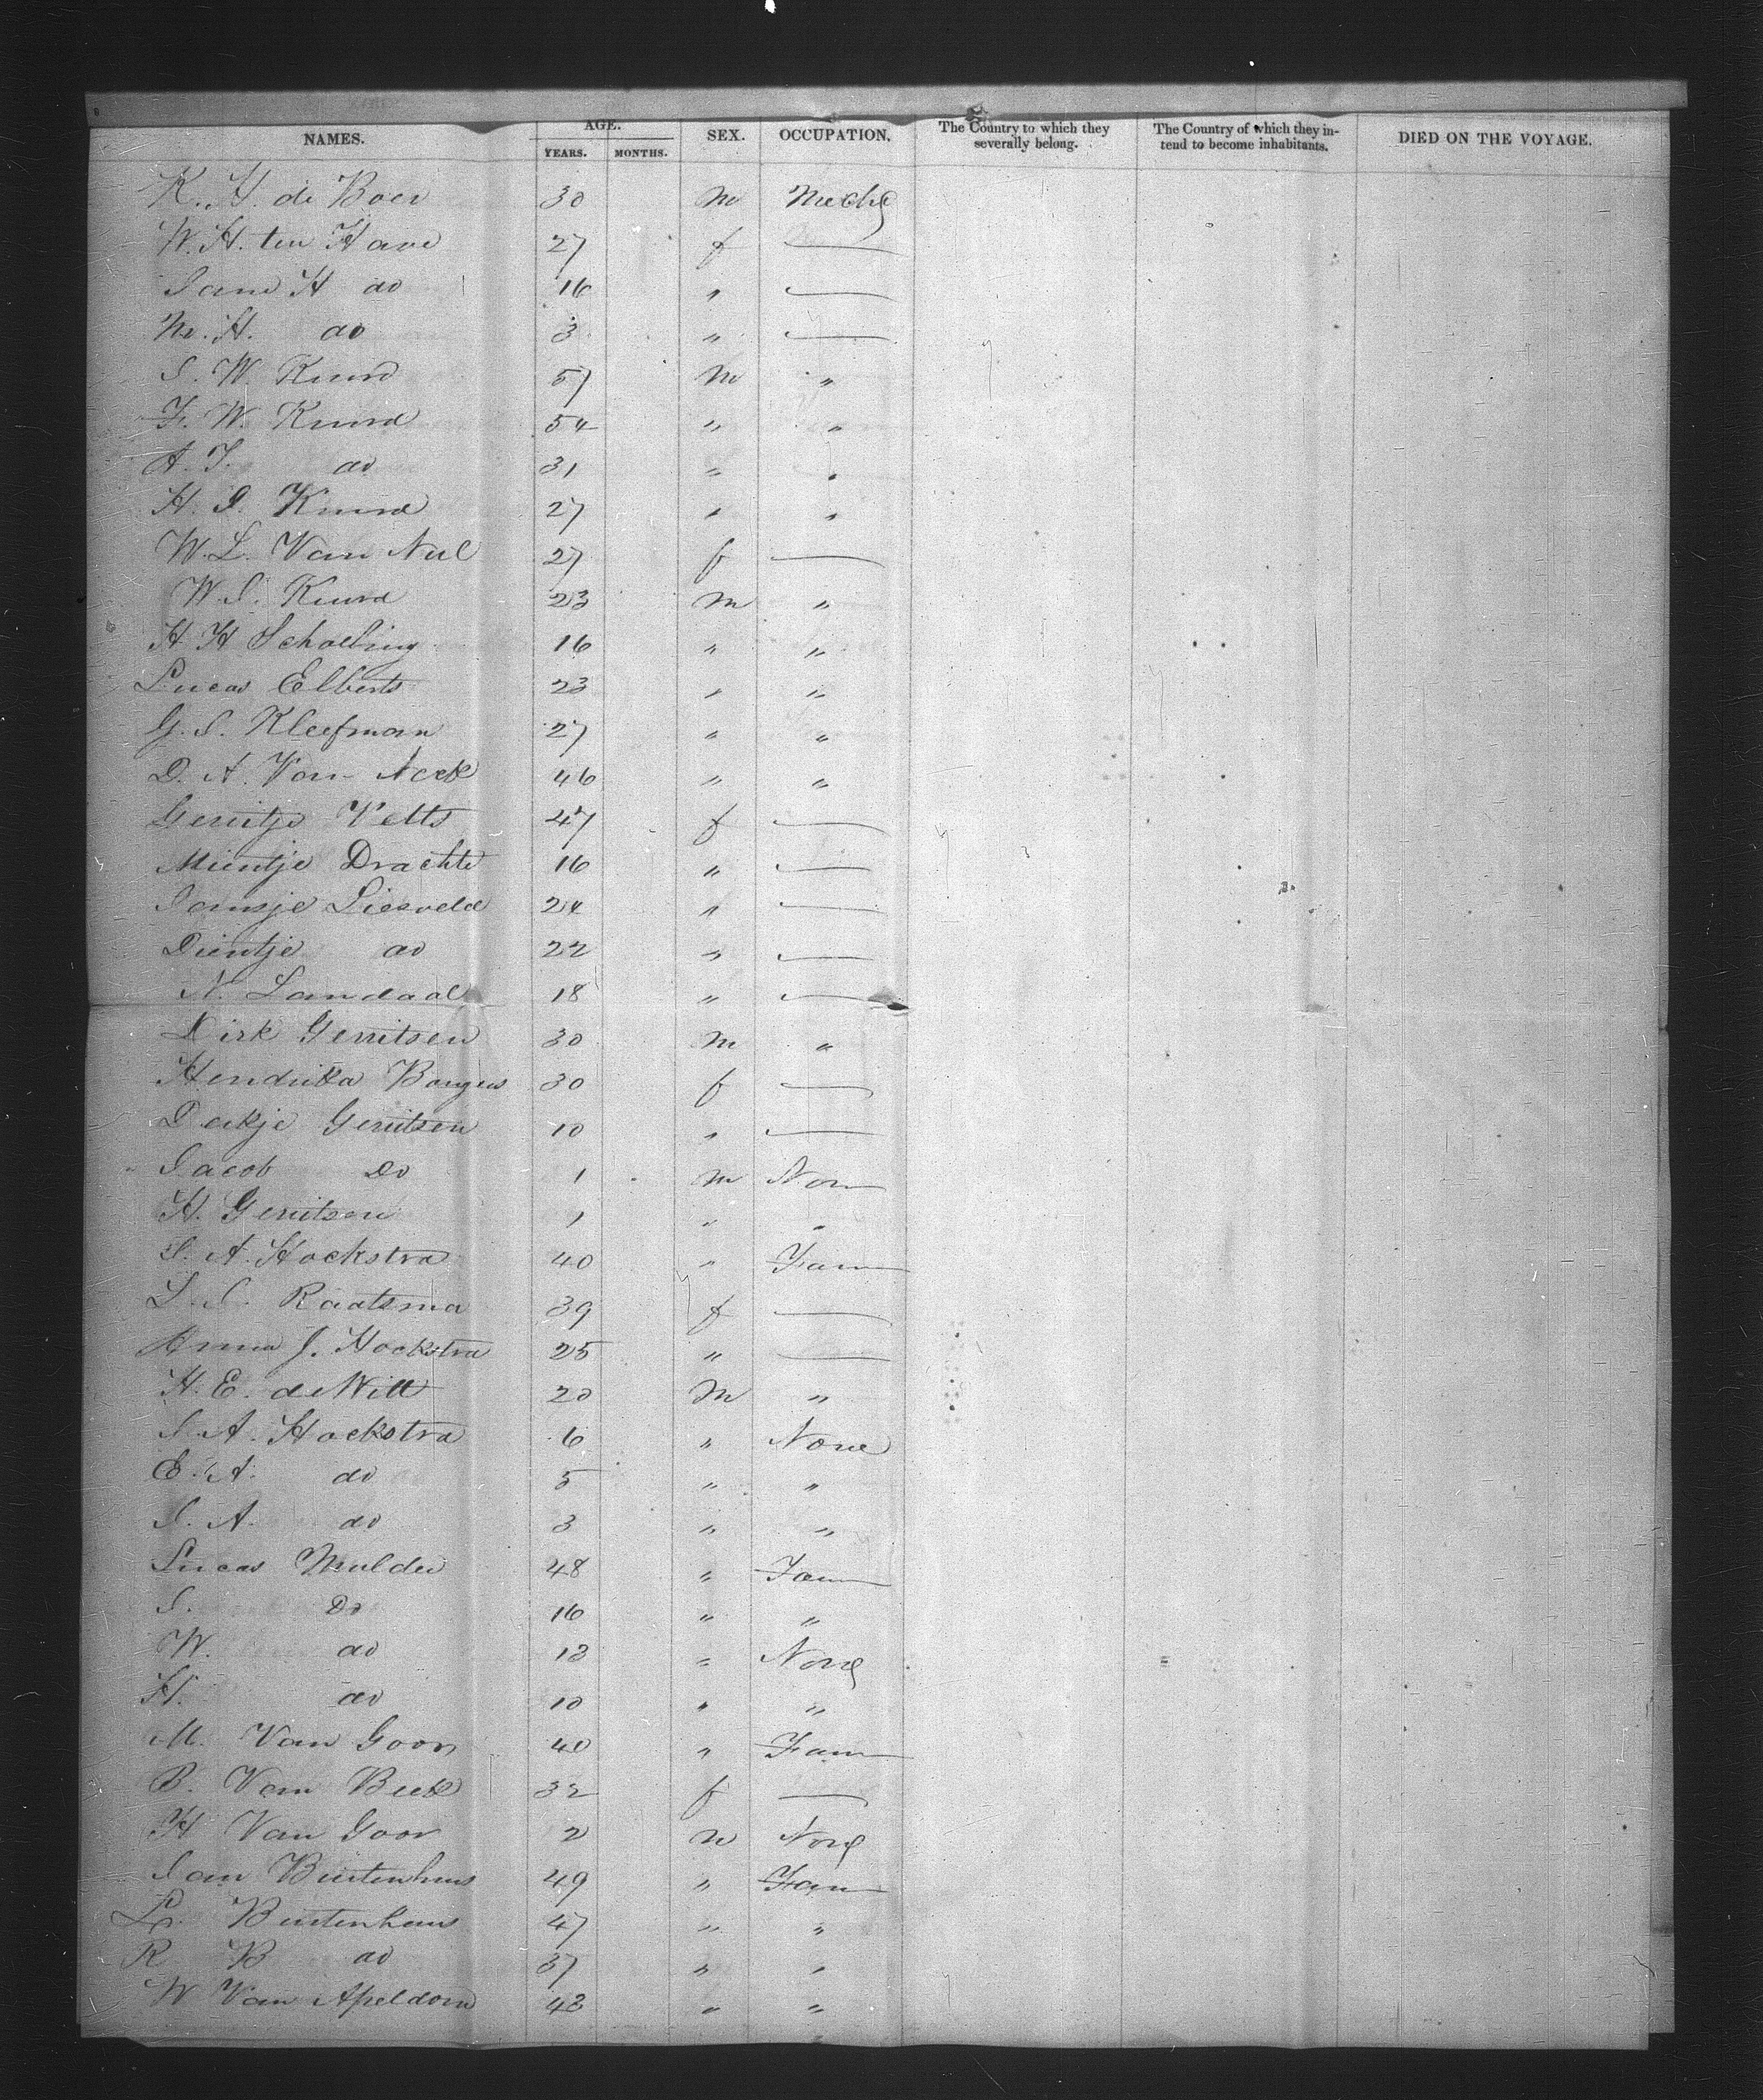 NAMES. AGE. YEARS. MONTHS. SEX. OCCUPATION. The Country to which they severally belong. The Country of which they intend to become inhabitants. DIED ON THE VOYAGE.
K. H. de Boer 30 m Mech
W. H. ten Have 27 f —
Jane H do 16 " —
M. H. do 3 " —
J. W. Kuurd 57 m "
F. W. Kuurd 54 " "
A. J. do 31 " "
H. J. Kuurd 27 " "
W. L. Van Nul 27 f —
W. J. Kuurd 23 m "
H H Scholling 16 " "
Lucas Elberts 23 " "
G. J. Kleefman 27 " "
D. A. Van Neck 46 " "
Gerritje Velts 47 f —
Mientje Drachte 16 " —
Jansje Liesveld 24 " —
Dientje do 22 " —
N. Landaal 18 " —
Dirk Gerritsen 30 m "
Hendrika 30 f —
Derkje Gerritsen 10 " —
Jacob Do 1 m Non
H. Gerritsen 1 " "
J. A. Hockstra 40 " Farm
L. J. Raatsma 39 f —
Anna J. Hockstra 25 " —
H. E. de Witt 20 m "
J. A. Hockstra 6 " None
E. A. do 5 " "
J. A. do 3 " "
Lucas Mulder 48 " Farm
J. Do 16 " "
W. do 13 " None
H. do 10 " "
M. Van Goor 40 " Farm
B. Van Beek 32 f —
H Van Goor 2 m None
Jan Buitenhuis 49 " Farm
L. Buitenhuis 47 " "
R B do 37 " "
W Van Apeldorn 43 " "